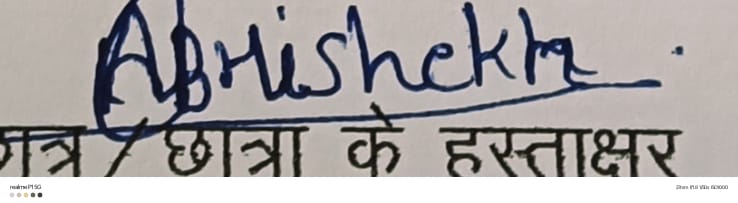 Abhishek
छात्र / छात्रा के हस्ताक्षर
realme P1 5G